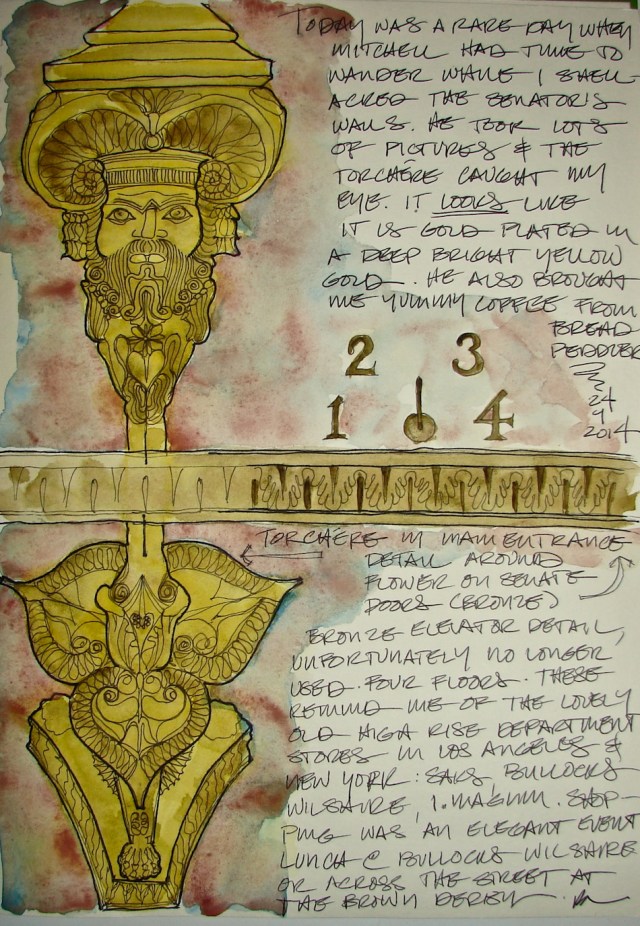 TODAY WAS A RARE DAY WHEN
MITCHELL HAD TIME TO
WANDER WHILE I SHELL-
ACKED THE SENATOR'S
WALLS. HE TOOK LOTS
OF PICTURES & THE
TORCHÈRE CAUGHT MY
EYE. IT LOOKS LIKE
IT IS GOLD PLATED IN
A DEEP BRIGHT YELLOW
GOLD. HE ALSO BROUGHT
ME YUMMY COFFEE FROM
BREAD
PEDDLER
24
2014
2 3
1 4
TORCHÈRE IN MAIN ENTRANCE
DETAIL AROUND
FLOWER ON SENATE
DOORS (BRONZE)
BRONZE ELEVATOR DETAIL,
UNFORTUNATELY NO LONGER
USED. FOUR FLOORS. THESE
REMIND ME OF THE LOVELY
OLD HIGH RISE DEPARTMENT
STORES IN LOS ANGELES &
NEW YORK: SAKS, BULLOCKS
WILSHIRE, I. MAGNIN. SHOP-
PING WAS AN ELEGANT EVENT
LUNCH @ BULLOCKS WILSHIRE
OR ACROSS THE STREET AT
THE BROWN DERBY.